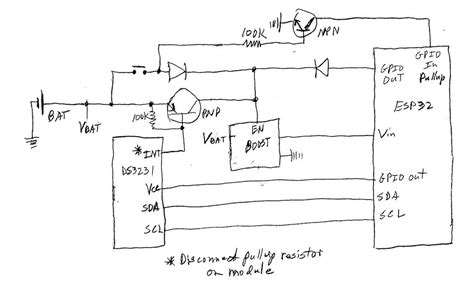 100K
NPN
GPIO
OUT
GPIO
In
Pullup
ESP32
BAT
VBAT
100K
PNP
VBAT
EN
BOOST
Vin
* INT
DS3231
Vcc
GPIO out
SDA
SDA
SCL
SCL
* Disconnect pullup resistor
on module